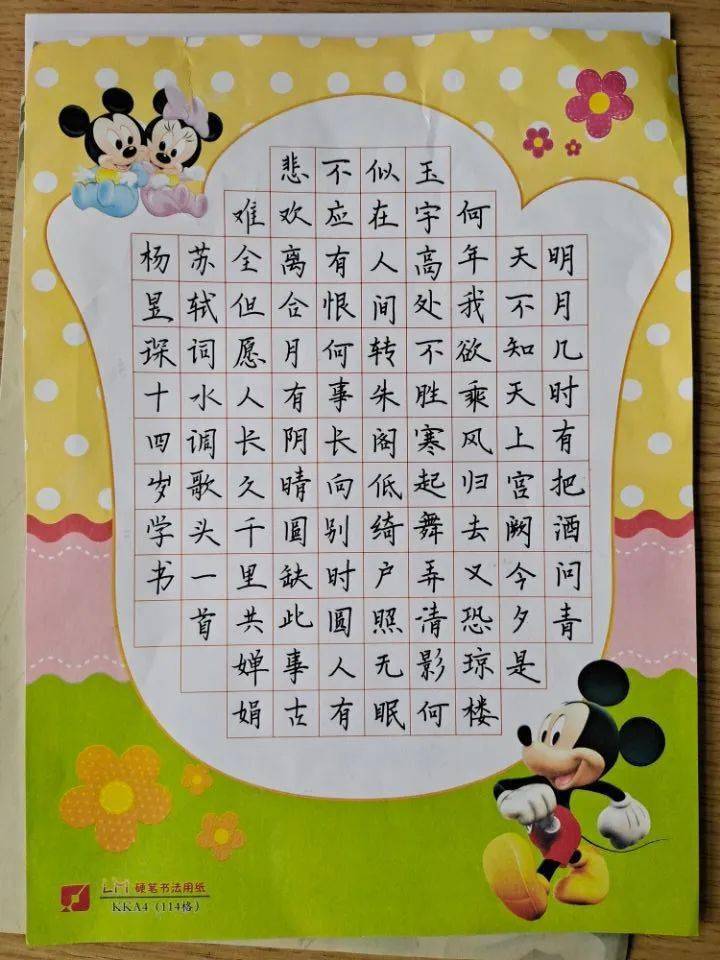 明月几时有把酒问青
天不知天上宫阙今夕是
何年我欲乘风归去又恐琼楼
玉宇高处不胜寒起舞弄清影何
似在人间转朱阁低绮户照无眠
不应有恨何事长向别时圆人有
悲欢离合月有阴晴圆缺此事古
难全但愿人长久千里共婵娟
苏轼词水调歌头一首
杨昱琛十四岁学书
LM 硬笔书法用纸
KKA4（114格）